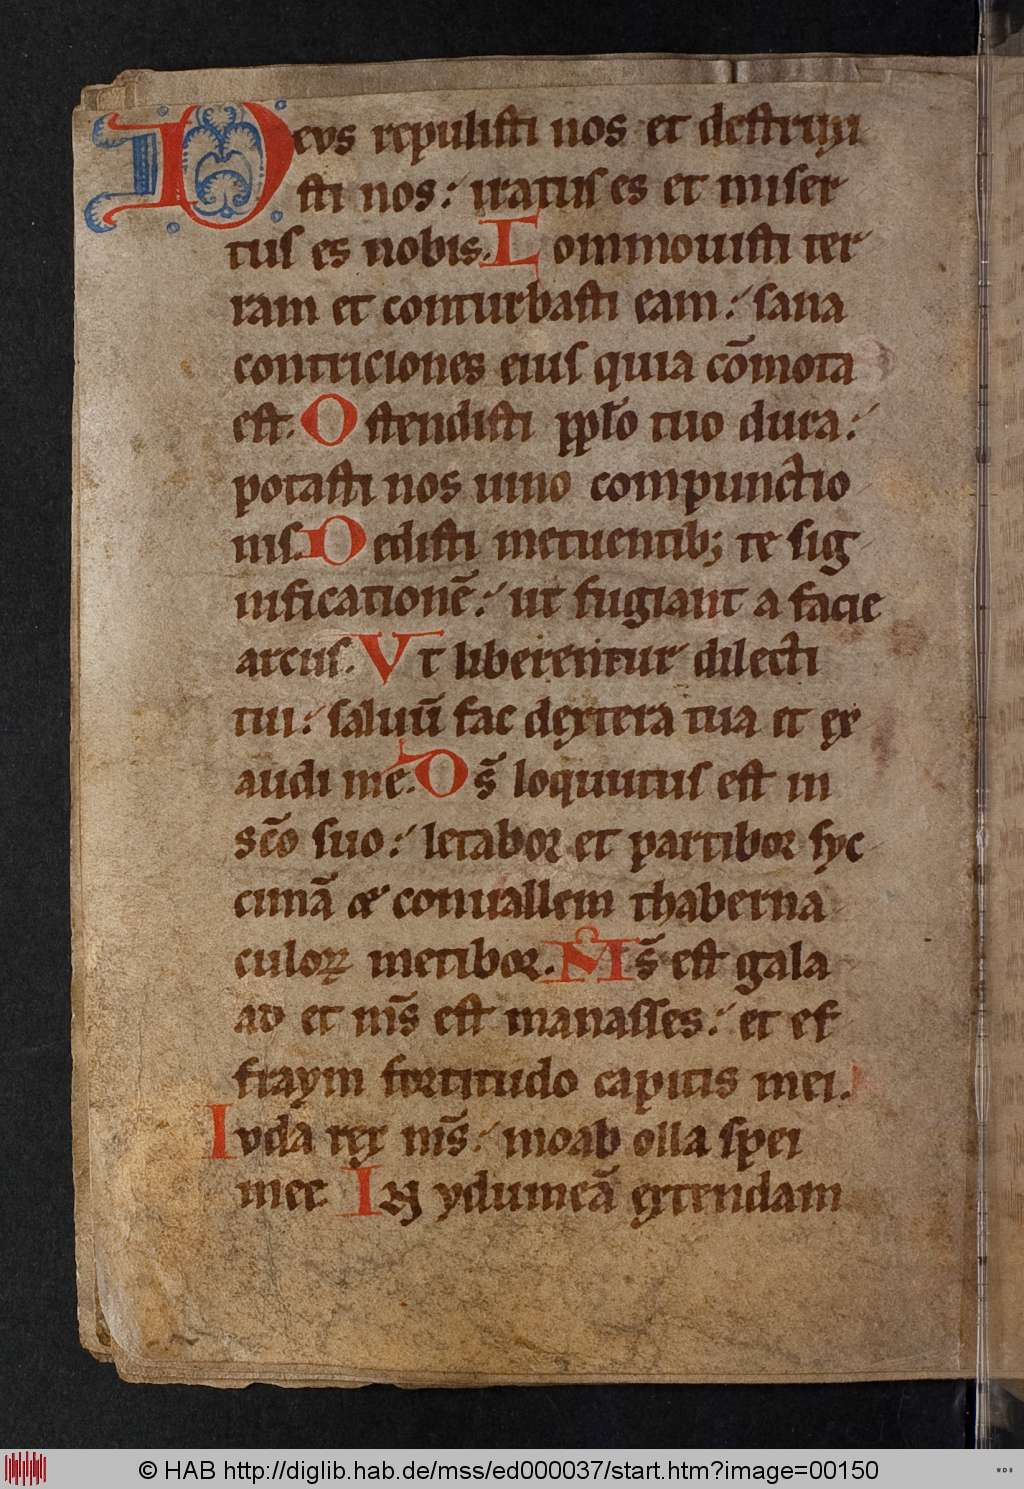 Deus repulisti nos et destruxi
sti nos: iratus es et miser
tus es nobis. Commouisti ter
ram et conturbasti eam: sana
contriciones eius quia cōmota
est. Ostendisti pplo tuo dura:
potasti nos uino compunctio
nis. Dedisti metuentib; te sig
nificationē: ut fugiant a facie
arcus. Vt liberentur dilecti
tui: saluū fac dextera tua et ex
audi me. Ds̄ loquutus est in
sc̄o suo: letabor et partibor syc
cimā & conuallem thaberna
culoꝝ metibor. Ms̄ est gala
ad et ms̄ est manasses: et ef
fraym fortitudo capitis mei.
Iuda rex ms̄: moab olla spei
mee In ydumeā extendam
© HAB http://diglib.hab.de/mss/ed000037/start.htm?image=00150